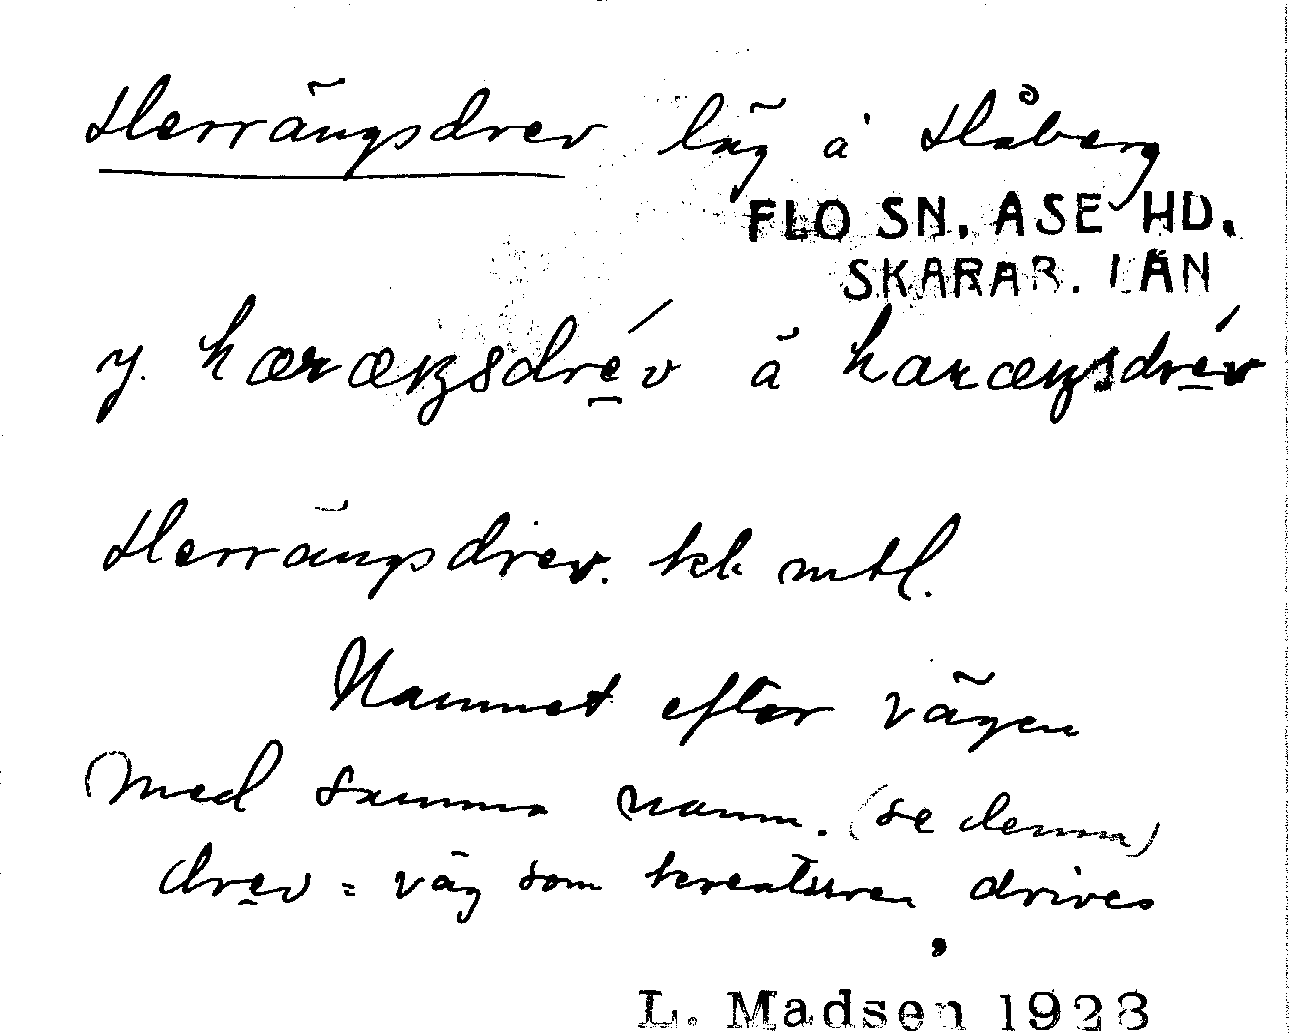 Herrängsdrev läg å Håberg
FLO SN. ASE HD.
SKARAB. LÄN
y. hæræŋsdrév å haræŋsdrév
Herrängsdrev. kk mtl.
Namnet efter vägen
med samma namn. (se denna)
drev = väg som kreaturen drives
L. Madsen 1928